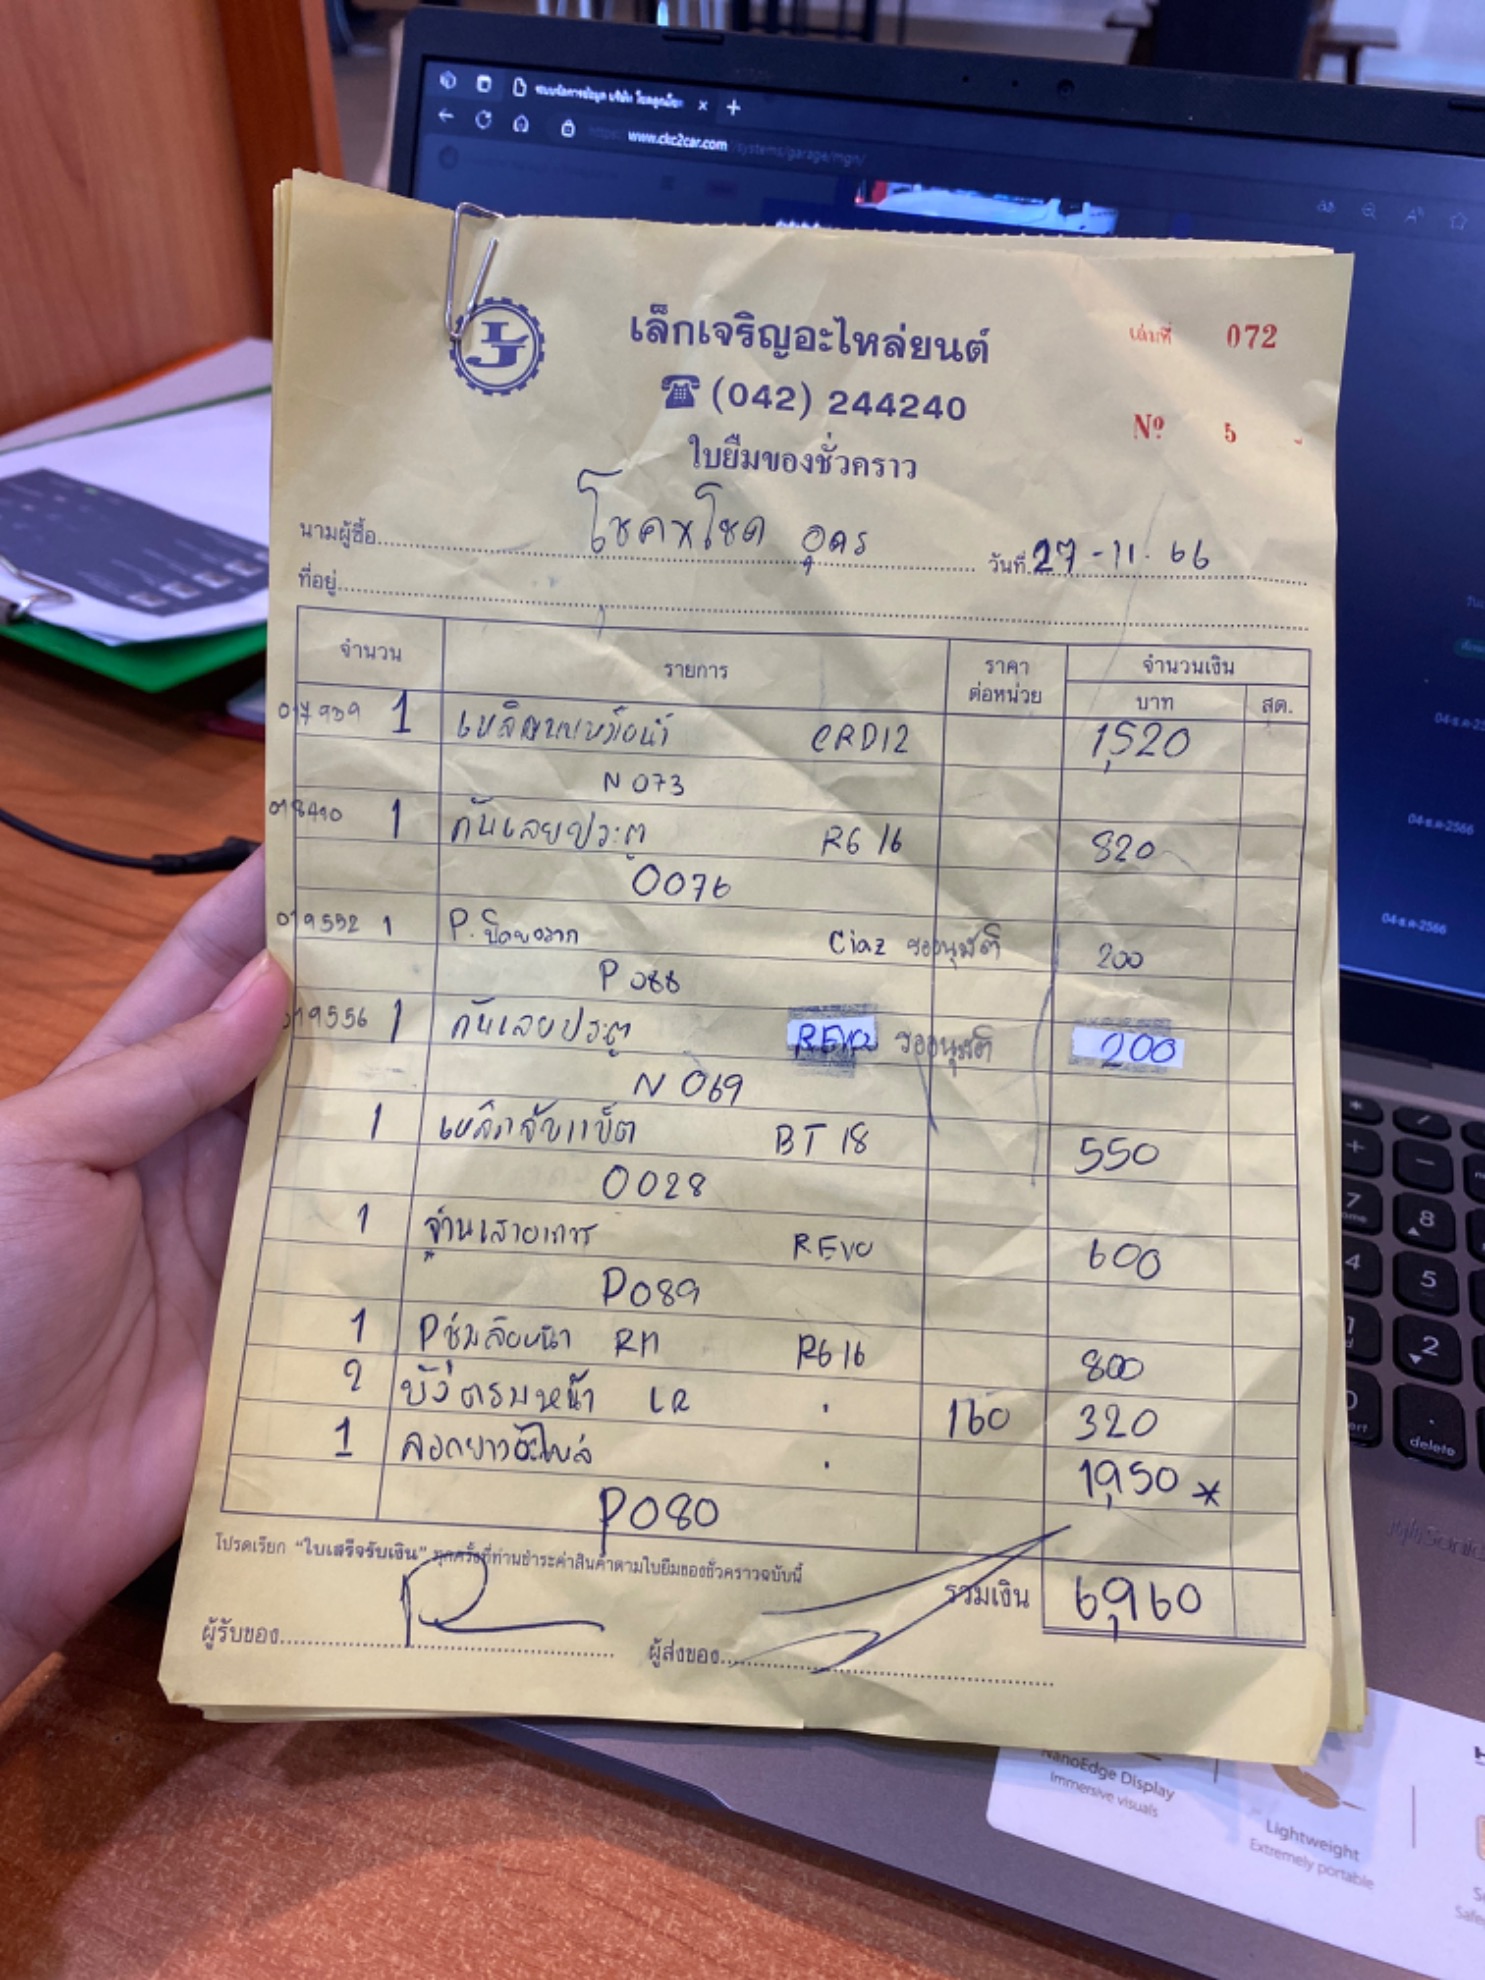 www.ckc2car.com/systems/garage/mgn/
เล็กเจริญอะไหล่ยนต์
เล่มที่ 072
☎ (042) 244240
Nº 5
ใบยืมของชั่วคราว
นามผู้ซื้อ โชคxโชค อุดร วันที่ 27-11-66
ที่อยู่
จำนวน รายการ ราคาต่อหน่วย จำนวนเงิน
บาท สต.
017939 1 CRD12 1,520
N 073
018410 1 กันเลยประตู RG 16 820
0076
019552 1 Ciaz รออนุมัติ 200
P 088
019556 1 กันเลยประตู REVO รออนุมัติ 200
N 069
1 เหล็กจับแบ็ต BT 18 550
0028
1 REVO 600
P089
1 RH RG 16 800
2 บังตรมหน้า LR " 160 320
1 " 1,950 *
P080
โปรดเรียก "ใบเสร็จรับเงิน" ทุกครั้งที่ท่านชำระค่าสินค้าตามใบยืมของชั่วคราวฉบับนี้
รวมเงิน 6,960
ผู้รับของ ผู้ส่งของ
04-ธ.ค-2566
04-ธ.ค-2566
7
8
4
5
2
delete
NanoEdge Display
Immersive visuals
Lightweight
Extremely portable